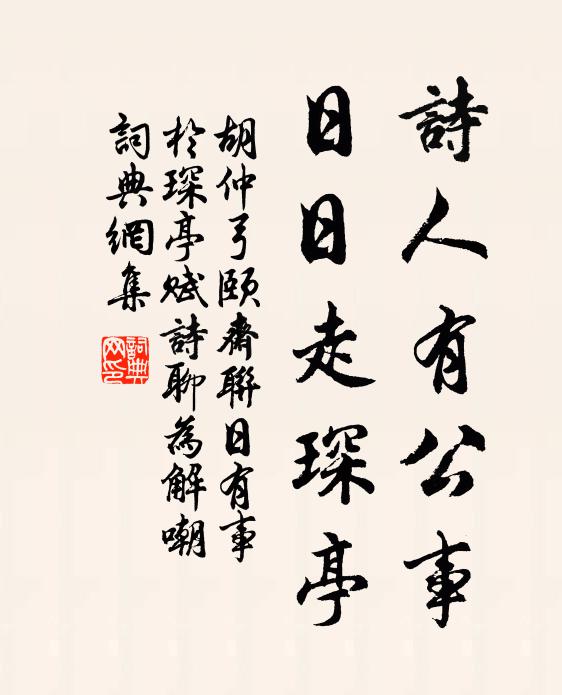 詩人有公事
日日走琛亭
胡仲弓頤齋聯日有事
於琛亭賦詩聊為解嘲
詞典網集
詞典
网印